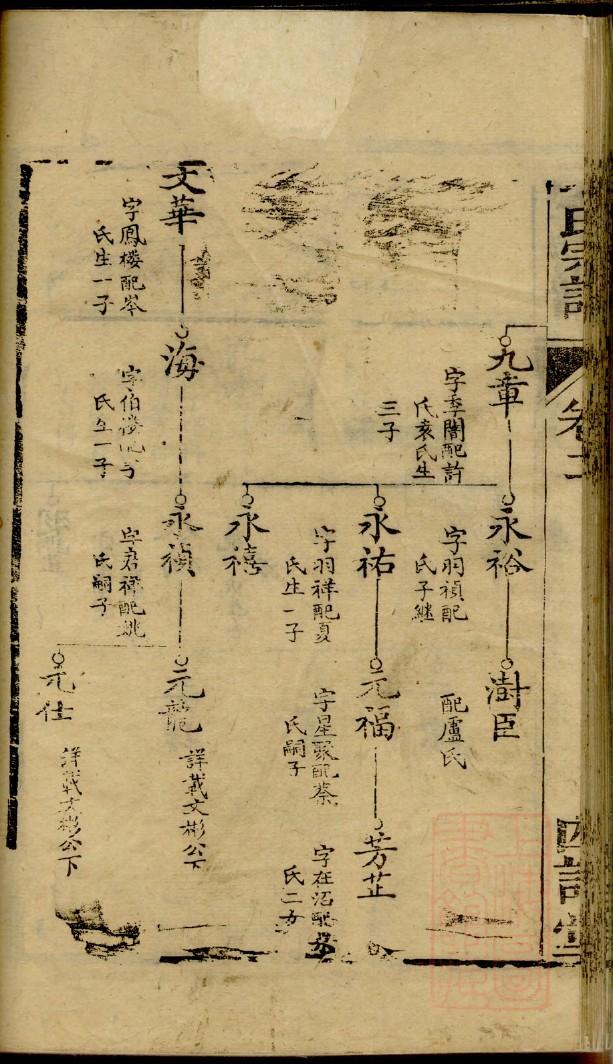 氏宗譜
卷十
九章
字季闇配許
氏袁氏生
三子
永裕
字羽禎配
氏子継
澍臣
配盧氏
永祐
字羽祥配夏
氏生一子
元福
字星聚配蔡
氏嗣子
芳芷
字在沼配
氏二女
永禧
文華
字鳳楼配岑
氏生一子
海
字伯
氏生一子
永禎
字君祥配姚
氏嗣子
元龍
詳載文彬公下
元仕
詳載文彬公下